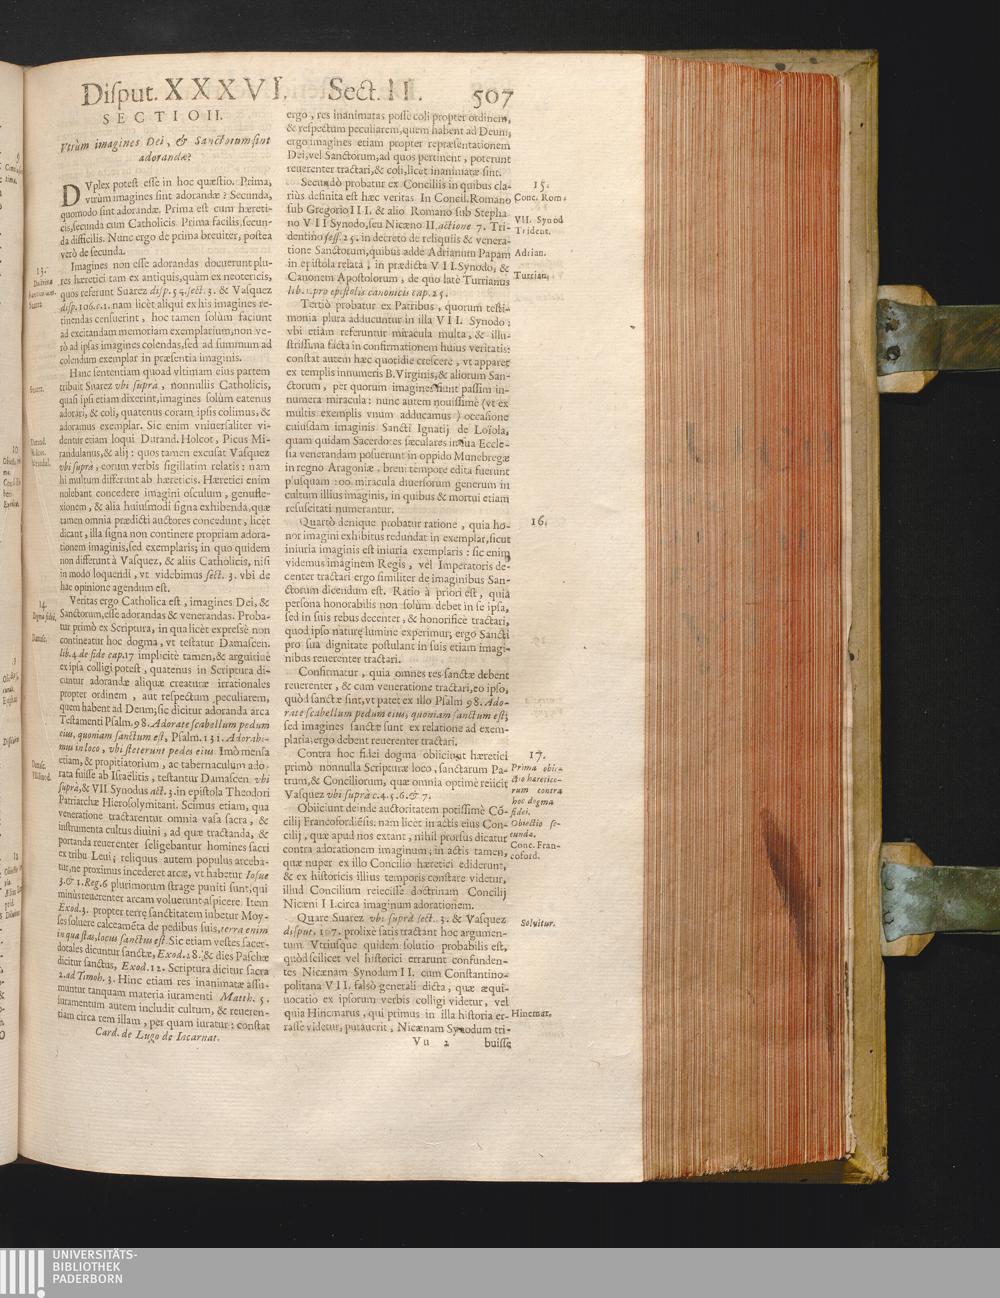 Disput. XXXVI. Sect. II. 507
SECTIO II.
Vtrùm imagines Dei, & Sanctorum sint
adorandæ?
DVplex potest esse in hoc quæstio. Prima,
vtrùm imagines sint adorandæ? Secunda,
quomodo sint adorandæ. Prima est cum hæreti-
cis, secunda cum Catholicis. Prima facilis, secun-
da difficilis. Nunc ergo de prima breuiter, postea
verò de secunda.
Imagines non esse adorandas docuerunt plu-
res hæretici tam ex antiquis, quàm ex neotericis,
quos referunt Suarez disp. 54. sect. 3. & Vasquez
disp. 106. c. 1. nam licèt aliqui ex his imagines re-
tinendas censuerint, hoc tamen solùm faciunt
ad excitandam memoriam exemplarium, non ve-
rò ad ipsas imagines colendas, sed ad summum ad
colendum exemplar in præsentia imaginis.
Hanc sententiam quoad vltimam eius partem
tribuit Suarez vbi suprà, nonnullis Catholicis,
quasi ipsi etiam dixerint, imagines solùm eatenus
adorari, & coli, quatenus coram ipsis colimus, &
adoramus exemplar. Sic enim vniuersaliter vi-
dentur etiam loqui Durand. Holcot, Picus Mi-
randulanus, & alij: quos tamen excusat Vasquez
vbi suprà, eorum verbis sigillatim relatis: nam
hi multùm differunt ab hæreticis. Hæretici enim
nolebant concedere imagini osculum, genufle-
xionem, & alia huiusmodi signa exhibenda, quæ
tamen omnia prædicti auctores concedunt, licèt
dicant, illa signa non continere propriam adora-
tionem imaginis, sed exemplaris; in quo quidem
non differunt à Vasquez, & aliis Catholicis, nisi
in modo loquendi, vt videbimus sect. 3. vbi de
hac opinione agendum est.
Veritas ergo Catholica est, imagines Dei, &
Sanctorum, esse adorandas & venerandas. Proba-
tur primò ex Scriptura, in qua licèt expressè non
contineatur hoc dogma, vt testatur Damascen.
lib. 4. de fide cap. 17 implicitè tamen, & arguitiuè
ex ipsa colligi potest, quatenus in Scriptura di-
cuntur adorandæ aliquæ creaturæ irrationales
propter ordinem, aut respectum peculiarem,
quem habent ad Deum; sic dicitur adoranda arca
Testamenti Psalm. 98. Adorate scabellum pedum
eius, quoniam sanctum est, Psalm. 131. Adorabi-
mus in loco, vbi steterunt pedes eius. Imò mensa
etiam, & propitiatorium, ac tabernaculum ado-
rata fuisse ab Israëlitis, testantur Damascen. vbi
suprà, & VII. Synodus act. 3. in epistola Theodori
Patriarchæ Hierosolymitani. Scimus etiam, qua
veneratione tractarentur omnia vasa sacra, &
instrumenta cultus diuini, ad quæ tractanda, &
portanda reuerenter seligebantur homines sacri
ex tribu Leui; reliquus autem populus arceba-
tur, ne proximus incederet arcæ, vt habetur Iosue
3. & 1. Reg. 6 plurimorum strage puniti sunt, qui
minùs reuerenter arcam voluerunt aspicere. Item
Exod. 3. propter terræ sanctitatem iubetur Moy-
ses soluere calceamēta de pedibus suis, terra enim
in qua stas, locus sanctus est. Sic etiam vestes sacer-
dotales dicuntur sanctæ, Exod. 28. & dies Paschæ
dicitur sanctus, Exod. 12. Scriptura dicitur sacra
2. ad Timoth. 3. Hinc etiam res inanimatæ assu-
muntur tanquam materia iuramenti Matth. 5.
iuramentum autem includit cultum, & reueren-
tiam circa rem illam, per quam iuratur: constat
Card. de Lugo de Incarnat.
13.
Suarez.
Suarez.
Durand.
Holcot.
Mirandul.
14.
Dogma fidei.
Damasc.
Damasc.
ergo, res inanimatas posse coli propter ordinem,
& respectum peculiarem, quem habent ad Deum;
ergo imagines etiam propter repræsentationem
Dei, vel Sanctorum, ad quos pertinent, poterunt
reuerenter tractari, & coli, licet inanimatæ sint.
Secundò probatur ex Conciliis in quibus cla-
riùs definita est hæc veritas. In Concil. Romano
sub Gregorio III. & alio Romano sub Stepha-
no VII Synodo, seu Nicæno II. actione 7. Tri-
dentino sess. 25. in decreto de reliquiis & venera-
tione Sanctorum, quibus adde Adrianum Papam
in epistola relata, in prædicta VII. Synodo, &
Canonem Apostolorum, de quo latè Turrianus
lib. 1. pro epistolis canonicis cap. 25.
Tertiò probatur ex Patribus, quorum testi-
monia plura adducuntur in illa VII. Synodo:
vbi etiam referuntur miracula multa, & illu-
strissima facta in confirmationem huius veritatis:
constat autem hæc quotidie crescere, vt apparet
ex templis innumeris B. Virginis, & aliorum San-
ctorum, per quorum imagines fiunt passim in-
numera miracula: nunc autem nouissimè (vt ex
multis exemplis vnum adducamus) occasione
cuiusdam imaginis Sancti Ignatij de Loïola,
quam quidam Sacerdotes sæculares in sua Eccle-
sia venerandam posuerunt in oppido Munebregæ
in regno Aragoniæ, breui tempore edita fuerunt
plusquam 200 miracula diuersorum generum in
cultum illius imaginis, in quibus & mortui etiam
resuscitati numerantur.
Quartò denique probatur ratione, quia ho-
nor imagini exhibitus redundat in exemplar, sicut
iniuria imaginis est iniuria exemplaris: sic enim
videmus imaginem Regis, vel Imperatoris de-
center tractari ergo similiter de imaginibus San-
ctorum dicendum est. Ratio à priori est, quia
persona honorabilis non solùm debet in se ipsa,
sed in suis rebus decenter, & honorificè tractari,
quod ipso naturę lumine experimur; ergo Sancti
pro sua dignitate postulant in suis etiam imagi-
nibus reuerenter tractari.
Confirmatur, quia omnes res sanctæ debent
reuerenter, & cum veneratione tractari, eo ipso,
quòd sanctæ sint, vt patet ex illo Psalm 98. Ado-
rate scabellum pedum eius, quoniam sanctum est;
sed imagines sanctæ sunt ex relatione ad exem-
plaria, ergo debent reuerenter tractari.
Contra hoc fidei dogma obiiciunt hæretici
primò nonnulla Scripturæ loca, sanctarum Pa-
trum, & Conciliorum, quæ omnia optimè reiicit
Vasquez vbi suprà c. 4. 5. 6. & 7.
Obiiciunt deinde auctoritatem potissimè Cō-
cilij Francofordiēsis. nam licèt in actis eius Con-
cilij, quæ apud nos extant, nihil prorsus dicatur
contra adorationem imaginum; in actis tamen,
quæ nuper ex illo Concilio hæretici ediderunt,
& ex historicis illius temporis constare videtur,
illud Concilium reiecisse doctrinam Concilij
Nicæni II. circa imaginum adorationem.
Quare Suarez vbi suprà sect. 3. & Vasquez
disput. 107. prolixè satis tractant hoc argumen-
tum. Vtriusque quidem solutio probabilis est,
quòd scilicet vel historici errarunt confunden-
tes Nicænam Synodum II. cum Constantino-
politana VII. falsò generali dicta, quæ æqui-
uocatio ex ipsorum verbis colligi videtur, vel
quia Hincmarus, qui primus in illa historia er-
rasse videtur, putauerit, Nicænam Synodum tri-
Vu 2 buisse
15.
Conc. Rom.
VII. Synod
Trident.
Adrian.
Turrian.
16.
17.
Prima obie-
ctio hæretico-
rum contra
hoc dogma
fidei.
Obiectio se-
cunda.
Conc. Fran-
coford.
Soluitur.
Hincmar.
UNIVERSITÄTS-
BIBLIOTHEK
PADERBORN